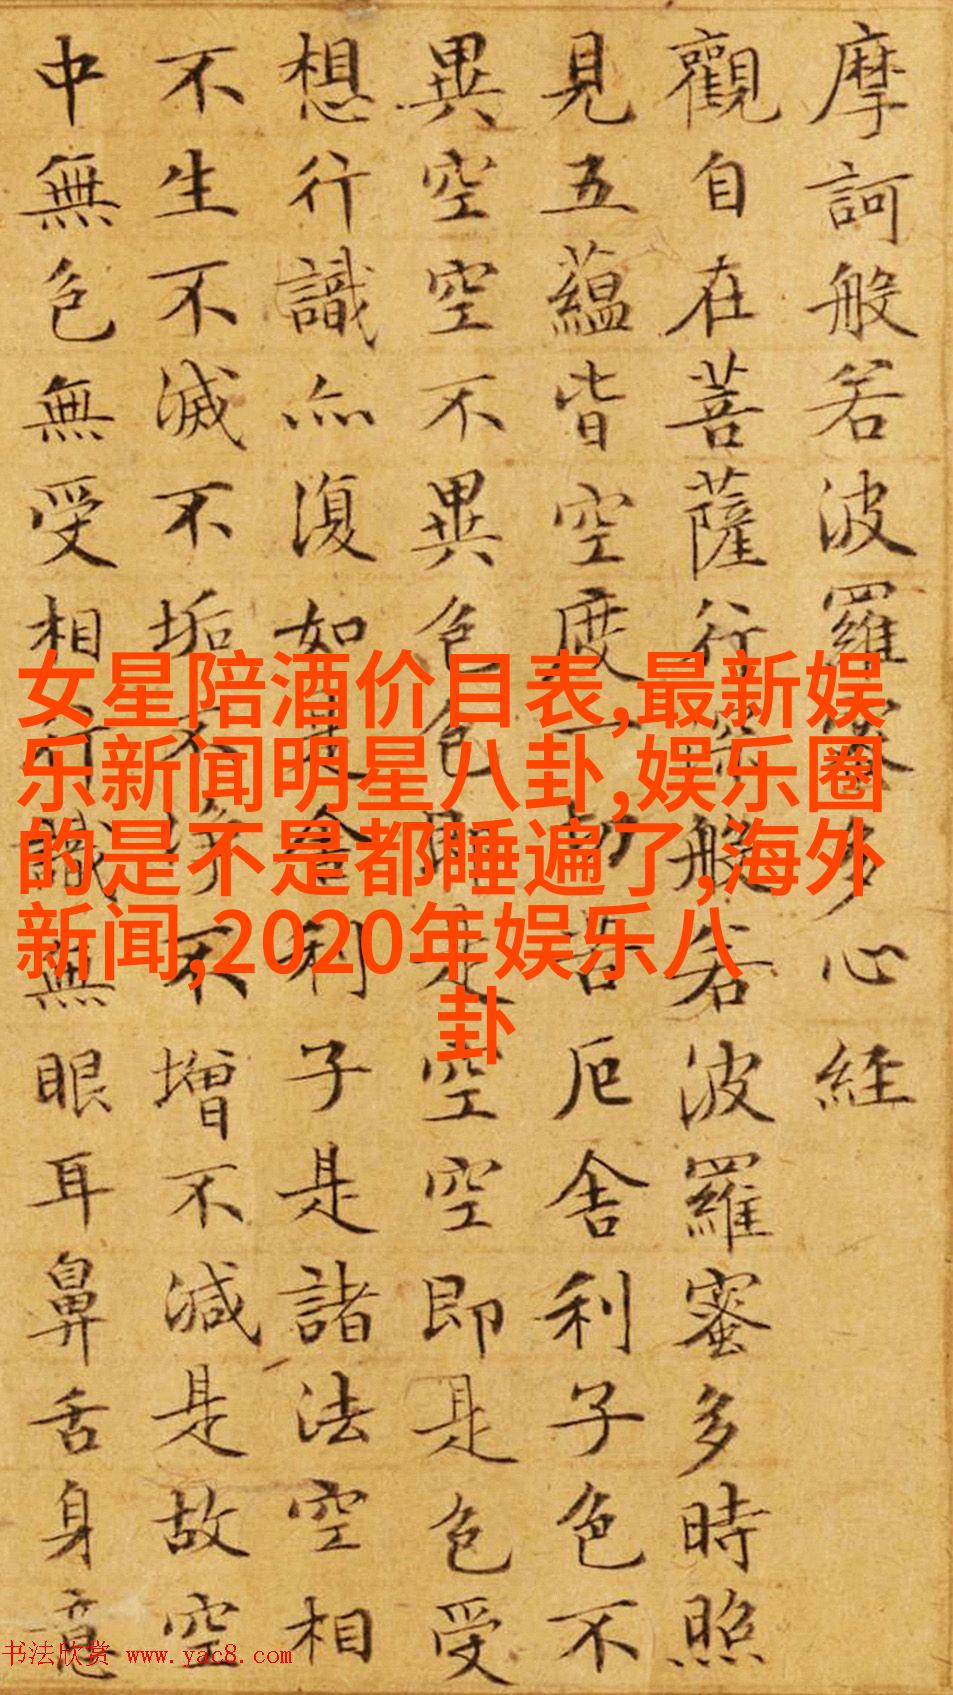 摩訶般若波羅蜜多心経
觀自在菩薩行深般若波羅蜜多時照
見五蘊皆空度一切苦厄舍利子色不
異空空不異色色即是空空即是色受
想行識亦復如是舍利子是諸法空相
不生不滅不垢不淨不增不減是故空
中無色無受想行識無眼耳鼻舌身意
女星陪酒价目表,最新娱
乐新闻明星八卦,娱乐圈
的是不是都睡遍了,海外
新闻,2020年娱乐八
卦
书法欣赏 www.yac8.com